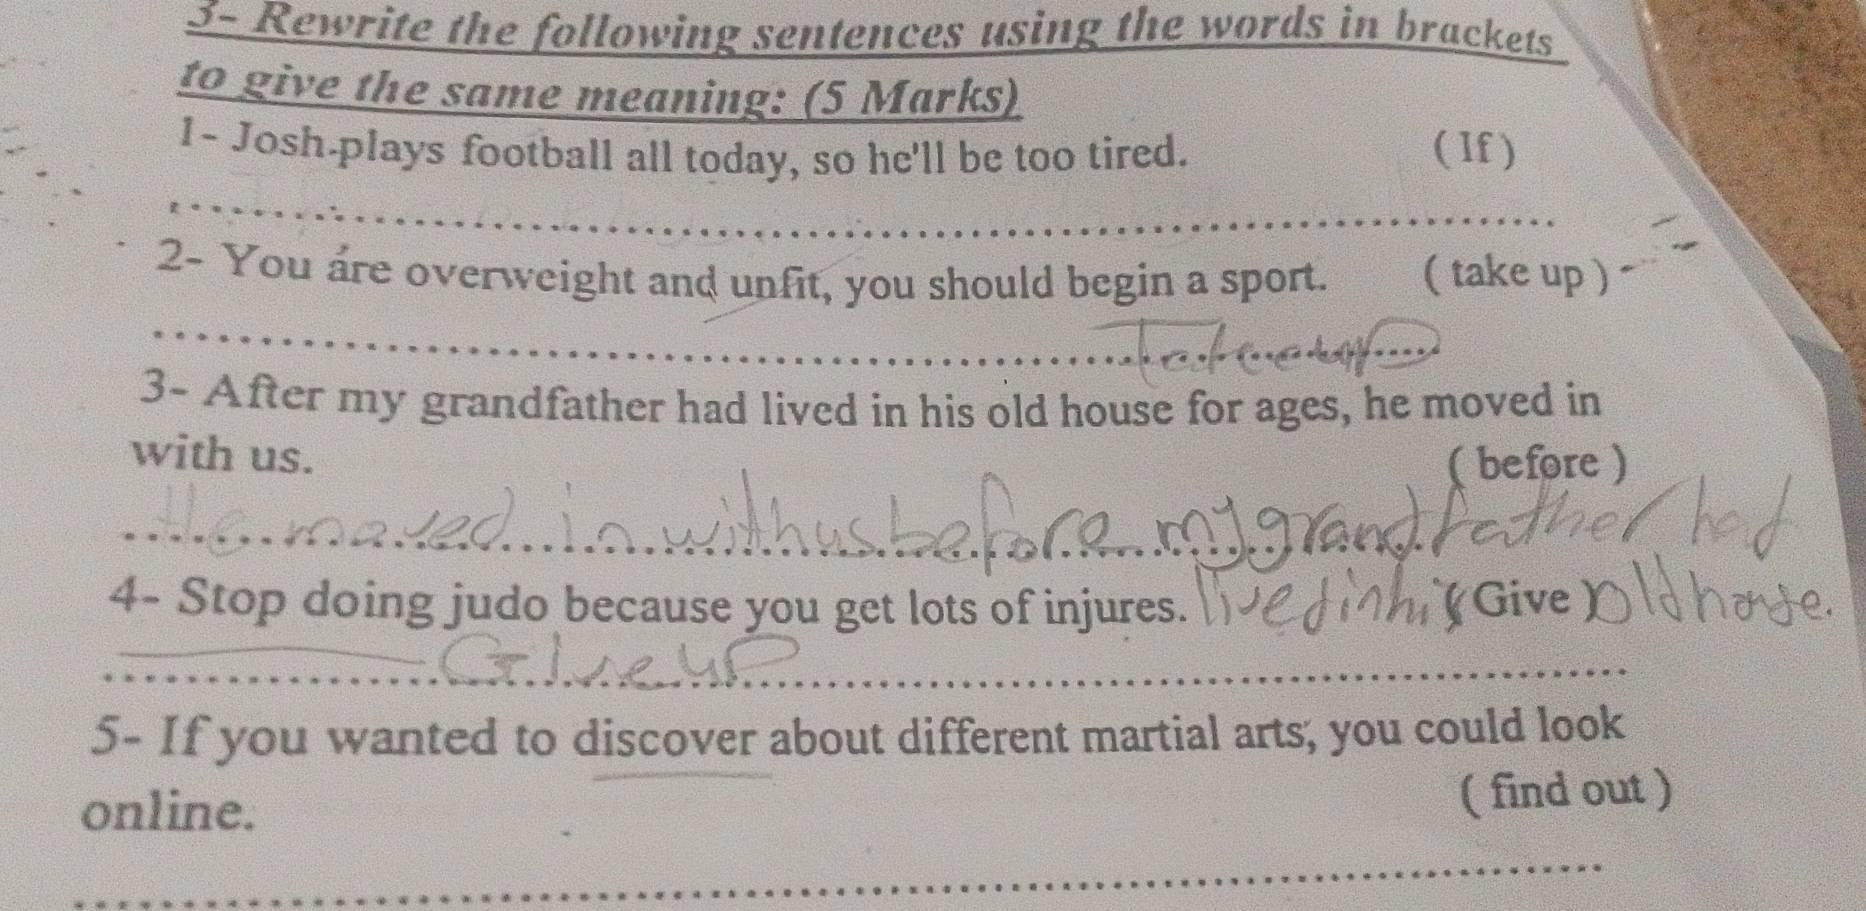 3- Rewrite the following sentences using the words in brackets
to give the same meaning: (5 Marks)
1- Josh plays football all today, so he'll be too tired. ( If )
2- You are overweight and unfit, you should begin a sport. ( take up )
3- After my grandfather had lived in his old house for ages, he moved in
with us. ( before )
He moved in with us before my grandfather had
lived in his old house.
4- Stop doing judo because you get lots of injures. ( Give )
Give up
5- If you wanted to discover about different martial arts, you could look
online. ( find out )